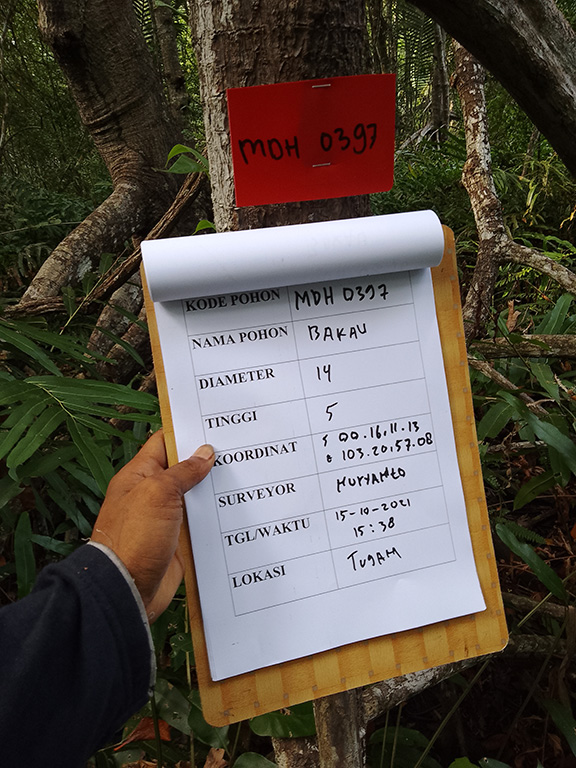 MDH 0397
KODE POHON MDH 0397
NAMA POHON BAKAU
DIAMETER 14
TINGGI 5
KOORDINAT S 00.16.11.13
E 103.20.57.08
SURVEYOR
TGL/WAKTU 15-10-2021
15:38
LOKASI TUGAM